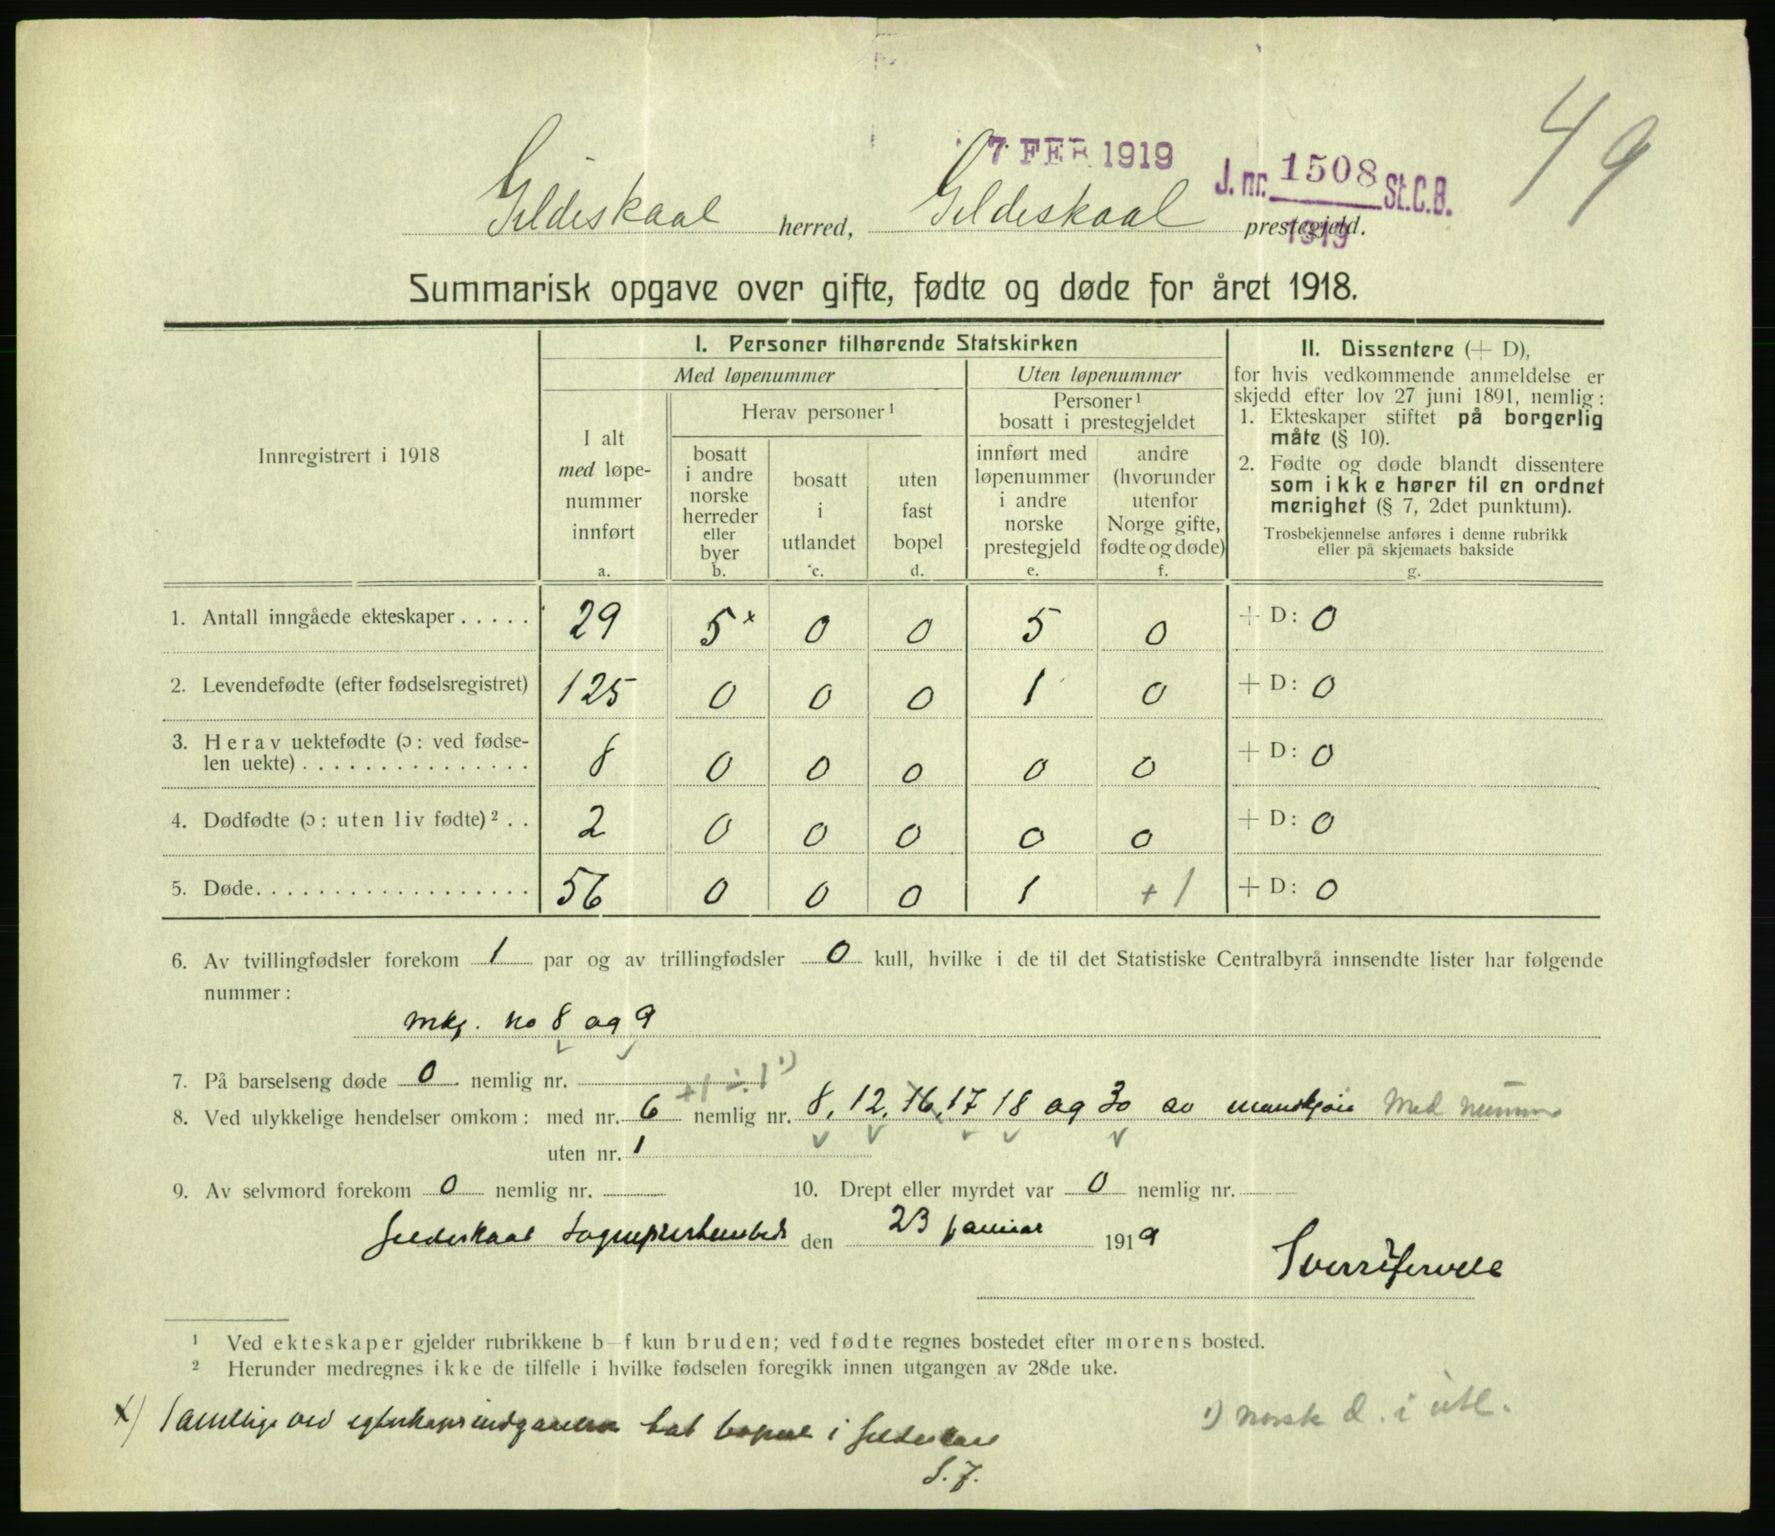 49
7 FEB 1919
J. nr. 1508 St.C.B.
1919
Gildeskaal herred, Gildeskaal prestegjeld.
Summarisk opgave over gifte, fødte og døde for året 1918.
Innregistrert i 1918
I. Personer tilhørende Statskirken
Med løpenummer
Uten løpenummer
I alt
med løpe-
nummer
innført
a.
Herav personer¹
bosatt
i andre
norske
herreder
eller
byer
b.
bosatt
i
utlandet
c.
uten
fast
bopel
d.
Personer¹
bosatt i prestegjeldet
innført med
løpenummer
i andre
norske
prestegjeld
e.
andre
(hvorunder
utenfor
Norge gifte,
fødte og døde)
f.
II. Dissentere (+ D),
for hvis vedkommende anmeldelse er
skjedd efter lov 27 juni 1891, nemlig:
1. Ekteskaper stiftet på borgerlig
måte (§ 10).
2. Fødte og døde blandt dissentere
som ikke hører til en ordnet
menighet (§ 7, 2det punktum).
Trosbekjennelse anføres i denne rubrikk
eller på skjemaets bakside
g.
1. Antall inngåede ekteskaper . . . . . 29 5ˣ 0 0 5 0 + D: 0
2. Levendefødte (efter fødselsregistret) 125 0 0 0 1 0 + D: 0
3. Herav uektefødte (ɔ: ved fødse-
len uekte) . . . . . . . . . . . . . . . 8 0 0 0 0 0 + D: 0
4. Dødfødte (ɔ: uten liv fødte)² . . 2 0 0 0 0 0 + D: 0
5. Døde. . . . . . . . . . . . . . . . . . 56 0 0 0 1 +1 + D: 0
6. Av tvillingfødsler forekom 1 par og av trillingfødsler 0 kull, hvilke i de til det Statistiske Centralbyrå innsendte lister har følgende
nummer:
mkj. no 8 og 9
7. På barselseng døde 0 nemlig nr.
+1 ÷ 1 ¹)
8. Ved ulykkelige hendelser omkom: med nr. 6 nemlig nr. 8, 12, 16, 17 18 og 30 av manskjøn Med numm
uten nr. 1
9. Av selvmord forekom 0 nemlig nr. 10. Drept eller myrdet var 0 nemlig nr.
Gildeskaal sogneprestembede den 23 januar 1919
¹ Ved ekteskaper gjelder rubrikkene b–f kun bruden; ved fødte regnes bostedet efter morens bosted.
² Herunder medregnes ikke de tilfelle i hvilke fødselen foregikk innen utgangen av 28de uke.
x) Samtlige ved egteskapsindgaaelsen tat bopæl i Gildeskaal
S. F.
¹) Norsk d. i utl.